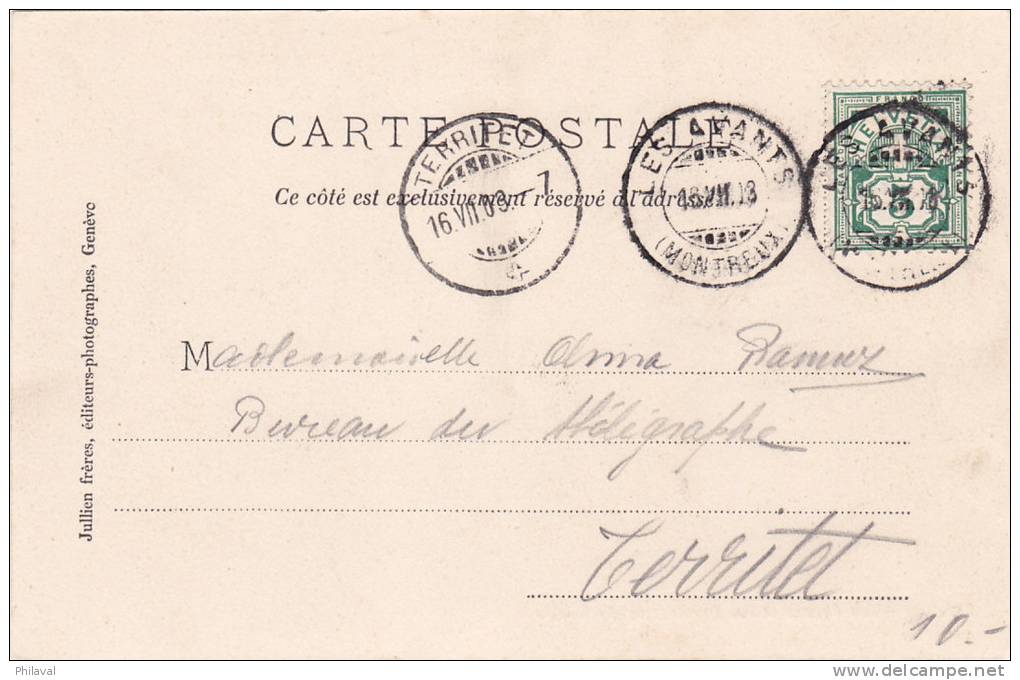 CARTE POSTALE
Ce côté est exclusivement réservé à l'adresse.
TERRITET
16.VII.03.–7
LES AVANTS
16.VII.03
(MONTREUX)
FRANCO
HELVETIA
5
LES AVANTS
Mademoiselle Anna Ramuz
Bureau du Télégraphe
Territet
10.-
Jullien frères, éditeurs-photographes, Genève
Philaval
delcampe.net